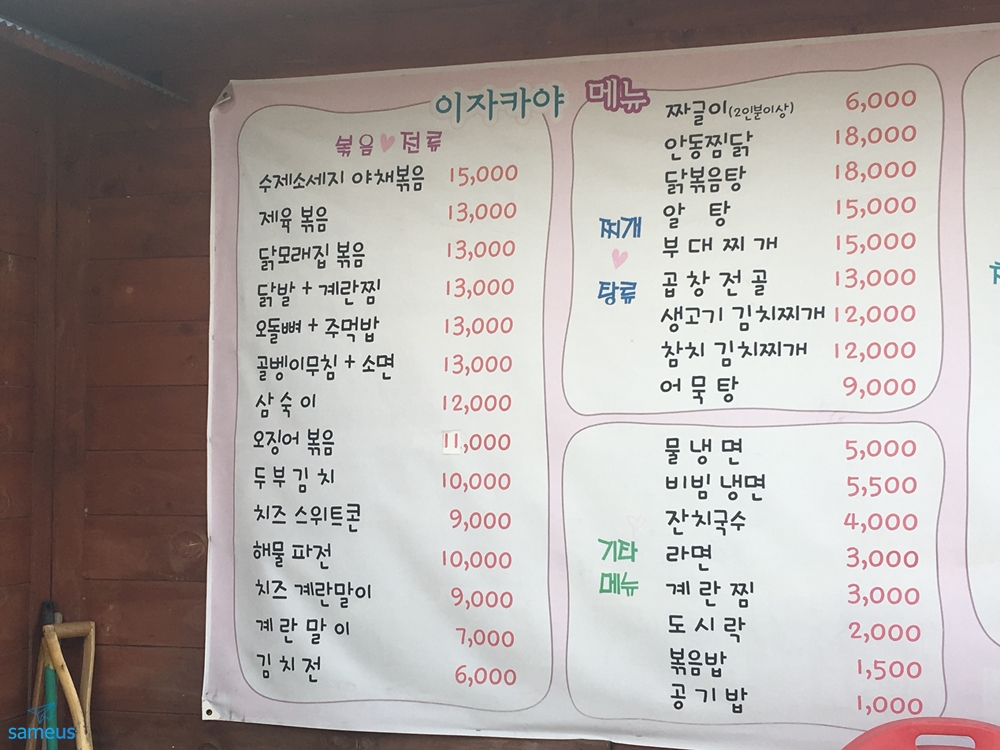 이자카야 메뉴
볶음♥전류
수제소세지 야채볶음 15,000
제육 볶음 13,000
닭모래집 볶음 13,000
닭발 + 계란찜 13,000
오돌뼈 + 주먹밥 13,000
골벵이무침 + 소면 13,000
삼숙이 12,000
오징어 볶음 11,000
두부김치 10,000
치즈 스위트콘 9,000
해물 파전 10,000
치즈 계란말이 9,000
계란말이 7,000
김치전 6,000
찌개
♥
탕류
짜글이(2인분이상) 6,000
안동찜닭 18,000
닭볶음탕 18,000
알 탕 15,000
부대찌개 15,000
곱창전골 13,000
생고기 김치찌개 12,000
참치 김치찌개 12,000
어묵탕 9,000
기타
메뉴
물냉면 5,000
비빔냉면 5,500
잔치국수 4,000
라면 3,000
계란찜 3,000
도시락 2,000
볶음밥 1,500
공기밥 1,000
sameus